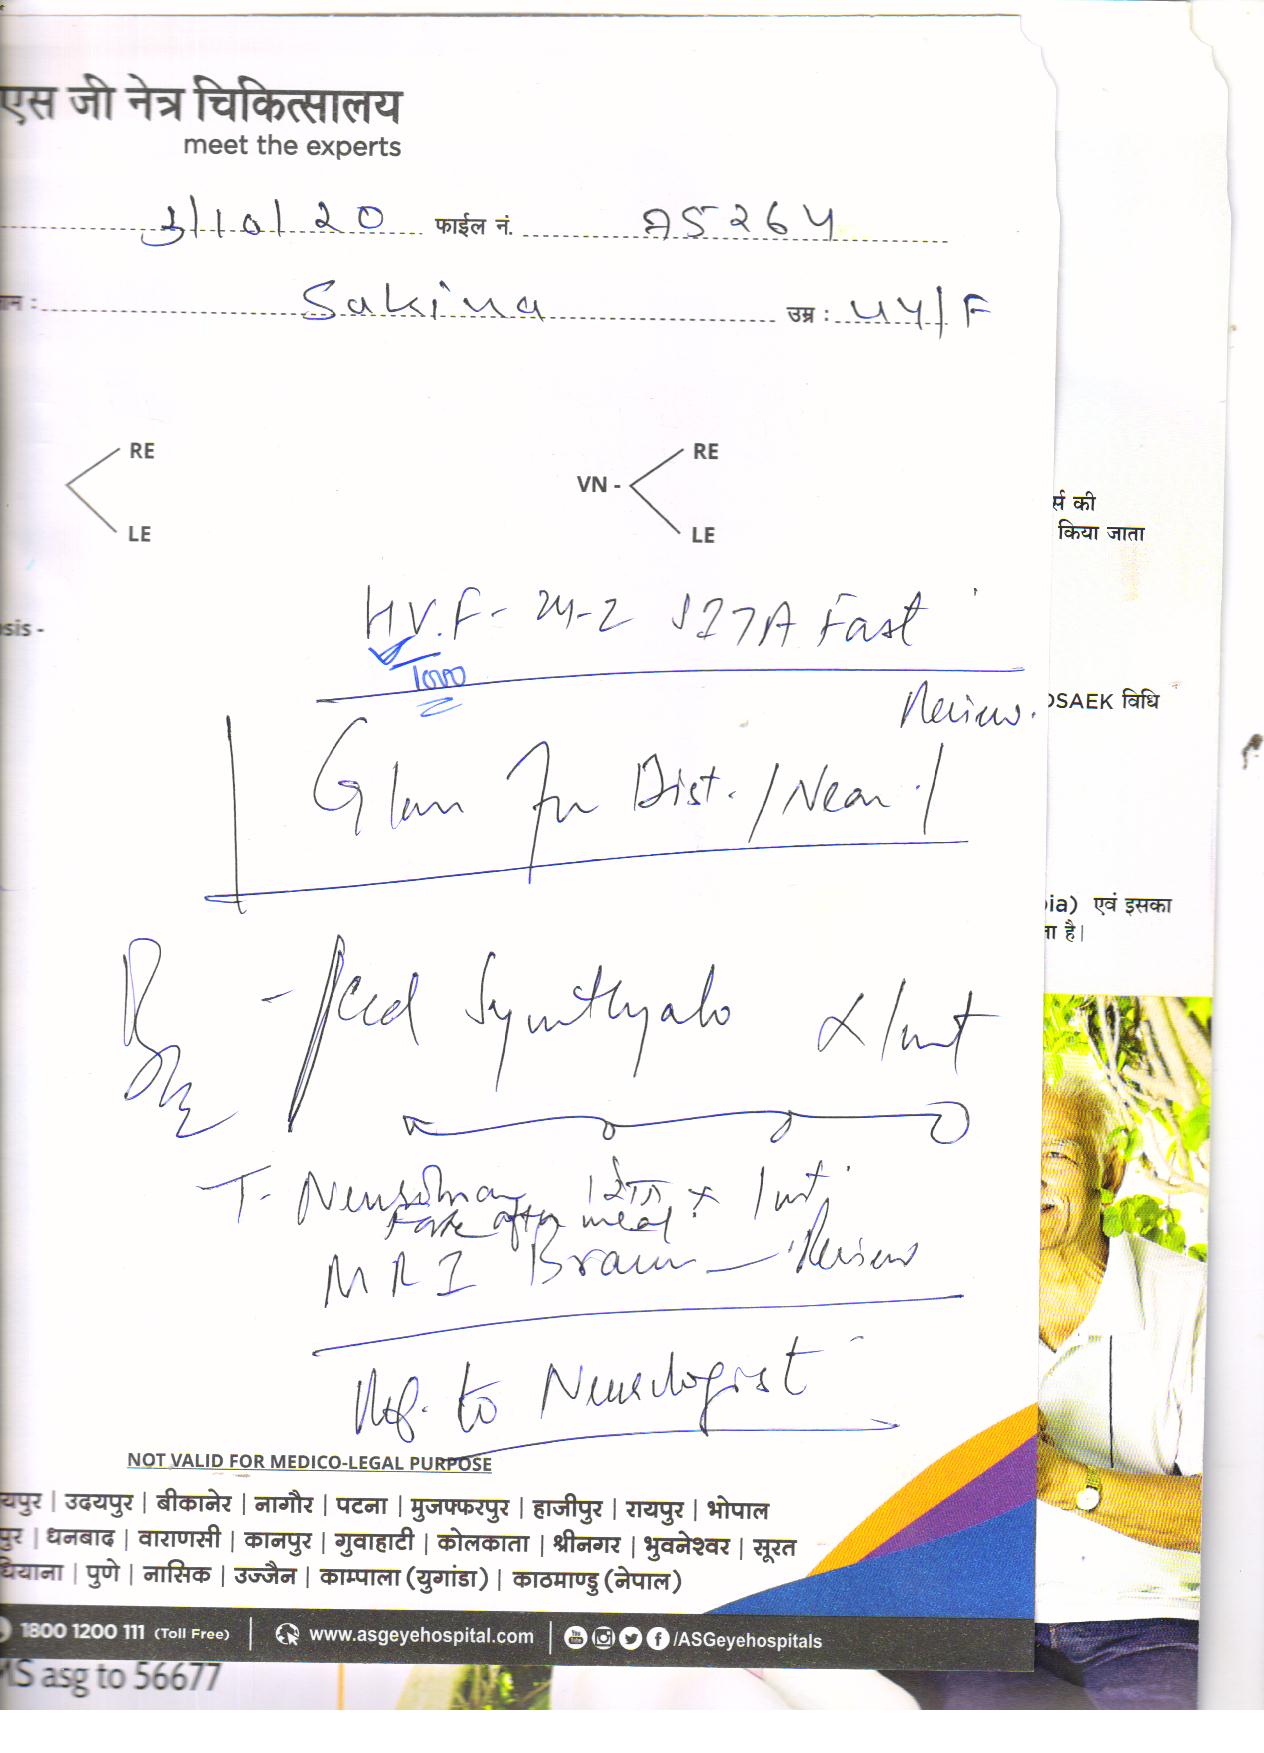 एस जी नेत्र चिकित्सालय
meet the experts
3/10/20 फाईल नं. A5264
नाम : Sakina उम्र : 44/F
RE
LE
VN -
RE
LE
र्स की
किया जाता
sis -
H.V.F - 24-2 SITA Fast
1000
Review.
DSAEK विधि
Glass for Dist. / Near.
ia) एवं इसका
ता है।
Rx
- Synthyalo x/mt
T- 1 रोज x 1mt
take after meal
MRI Brain - Review
Ref. to Neurologist
NOT VALID FOR MEDICO-LEGAL PURPOSE
यपुर | उदयपुर | बीकानेर | नागौर | पटना | मुजफ्फरपुर | हाजीपुर | रायपुर | भोपाल
पुर | धनबाद | वाराणसी | कानपुर | गुवाहाटी | कोलकाता | श्रीनगर | भुवनेश्वर | सूरत
धियाना | पुणे | नासिक | उज्जैन | काम्पाला (युगांडा) | काठमाण्डु (नेपाल)
1800 1200 111 (Toll Free) | www.asgeyehospital.com | /ASGeyehospitals
MS asg to 56677